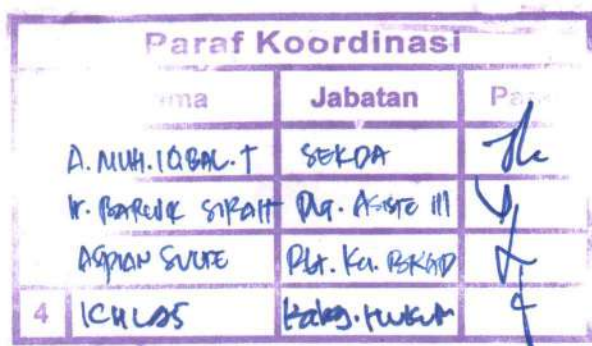 Paraf Koordinasi
ma Jabatan Pa
A. MUH. IQBAL. T SEKDA
SEKDA
Ir. BARLIK SIRATT Plt. ASISTE III
ASPIAN SUUTE Plt. Ka. BKAD
4 ICHLAS Kabag. HUKUM